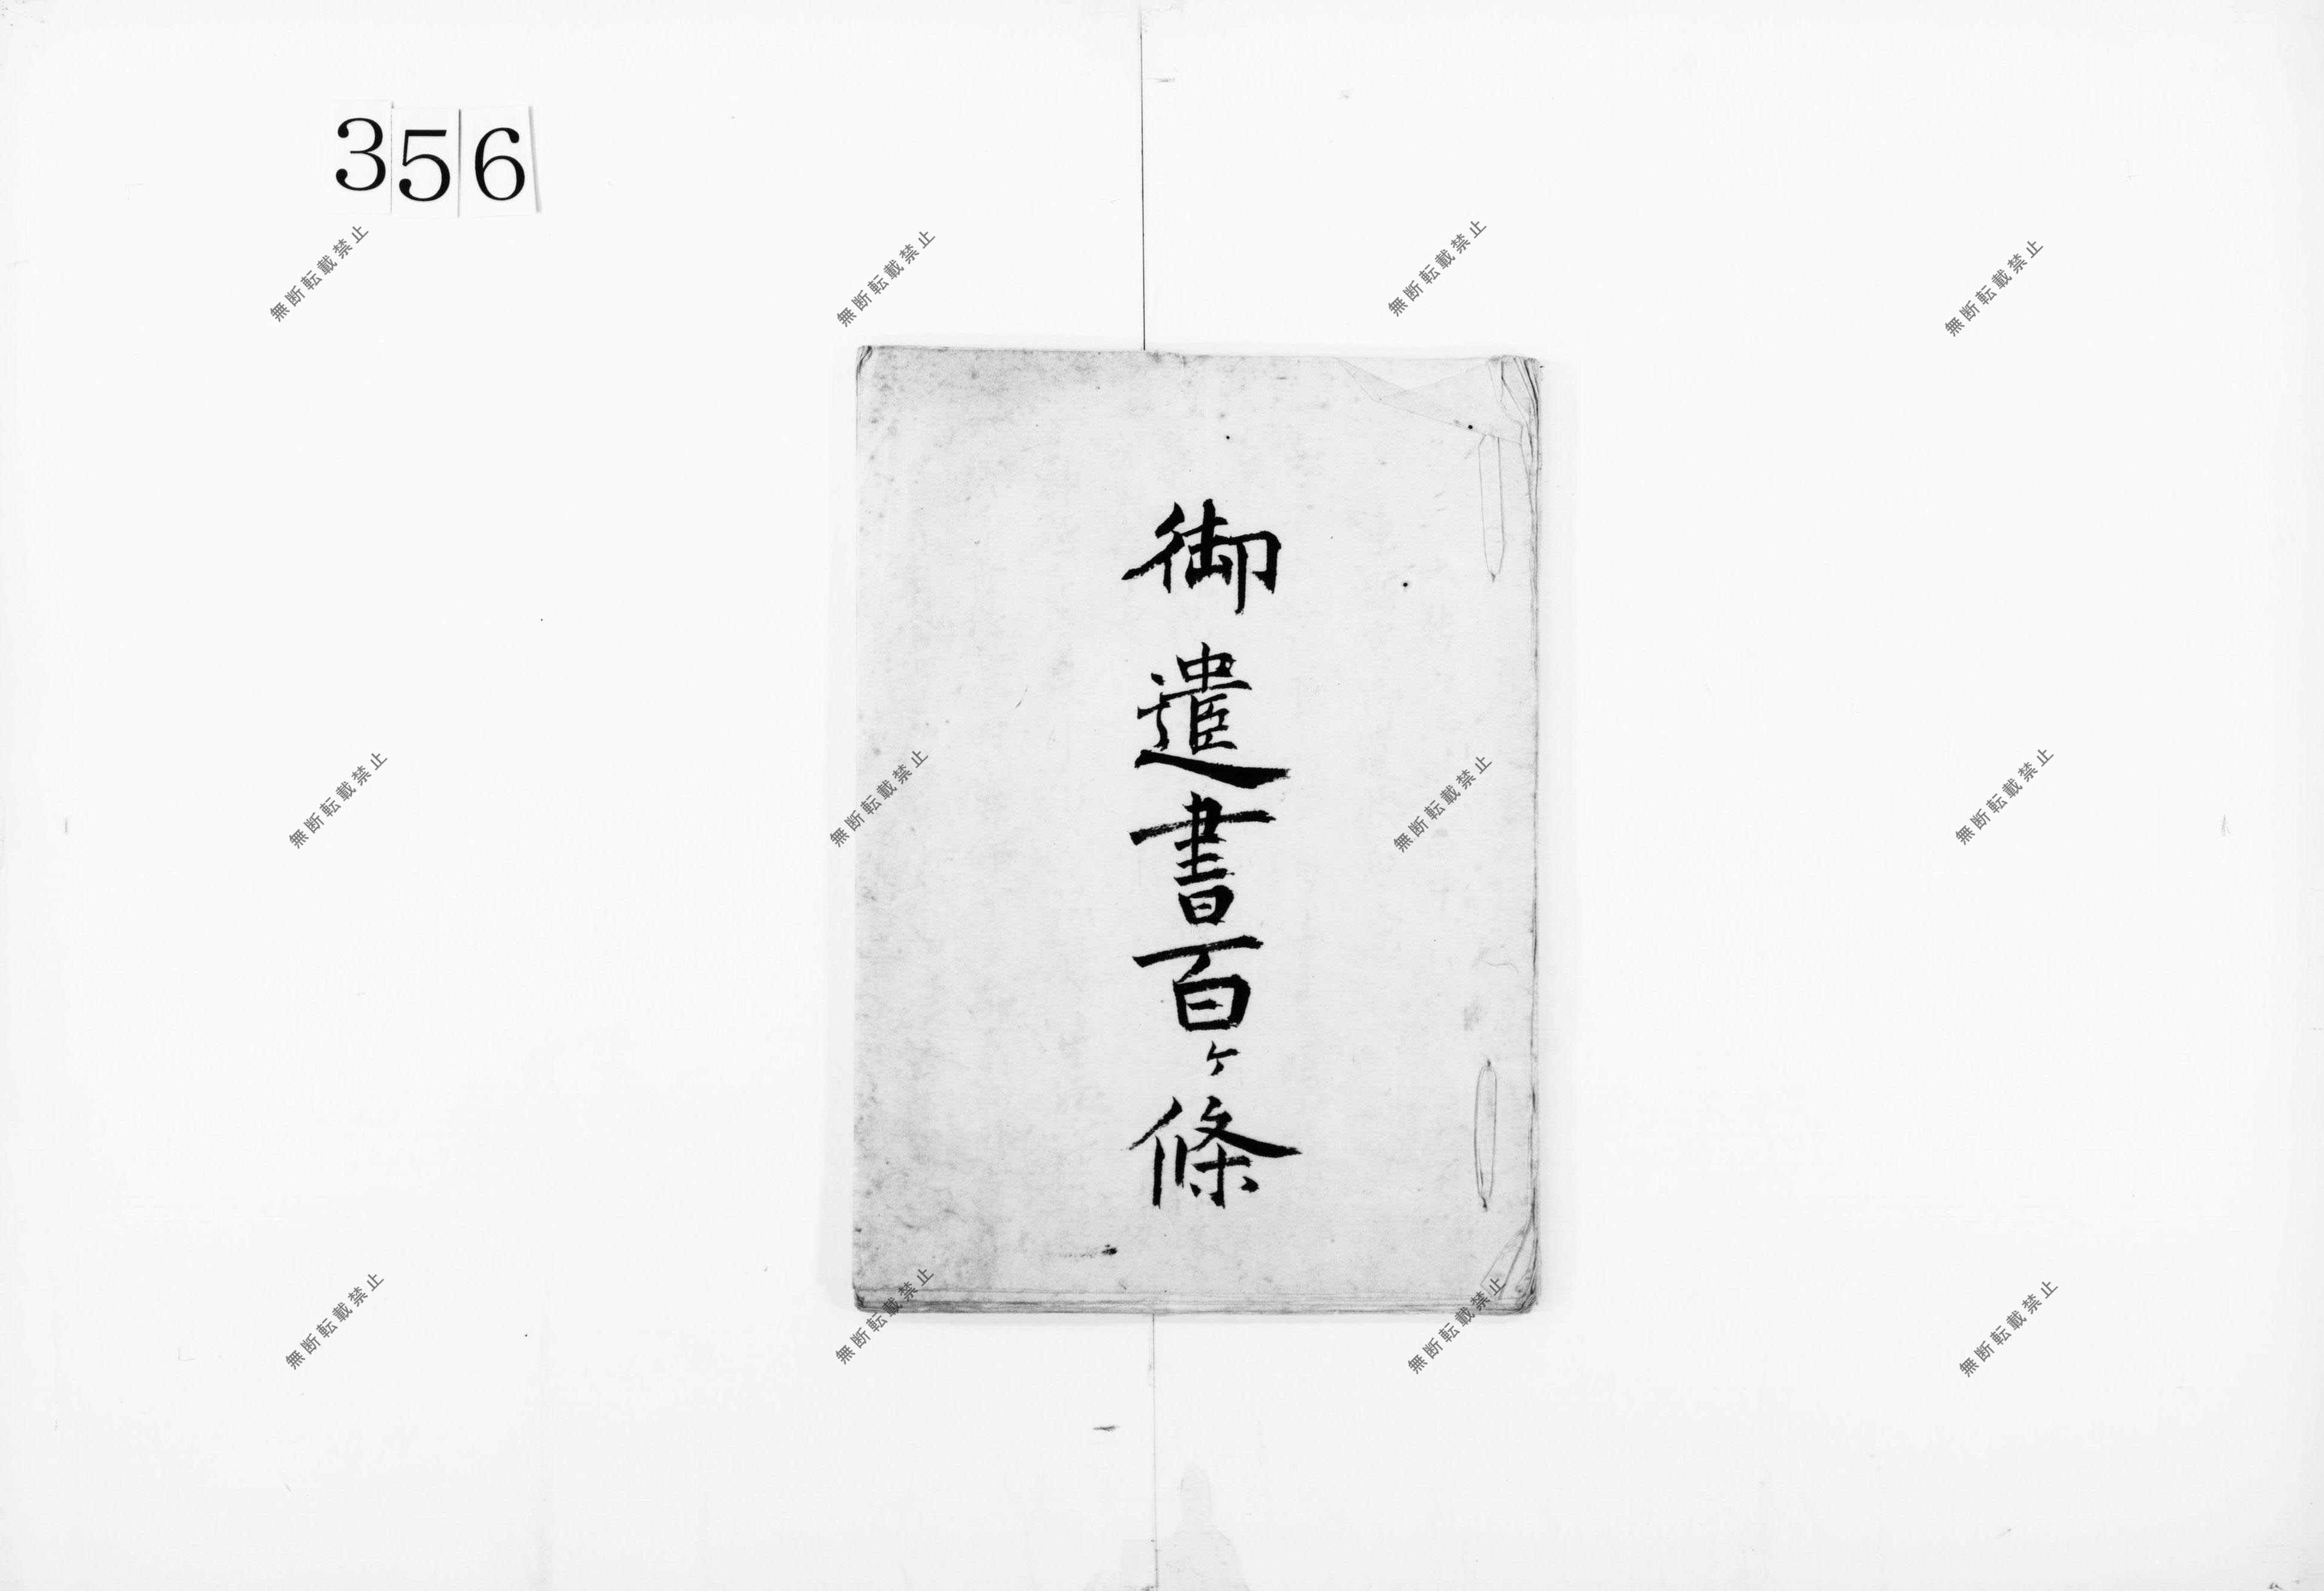 356
御遺書百ヶ條
無断転載禁止
無断転載禁止
無断転載禁止
無断転載禁止
無断転載禁止
無断転載禁止
無断転載禁止
無断転載禁止
無断転載禁止
無断転載禁止
無断転載禁止
無断転載禁止